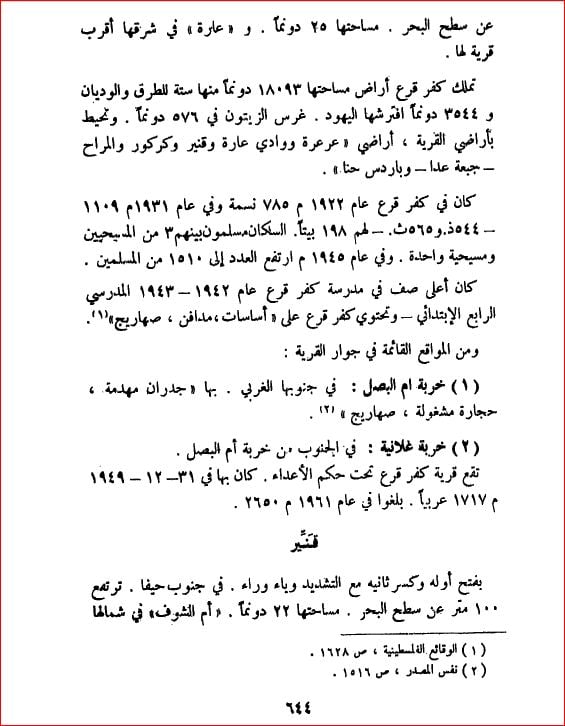 عن سطح البحر . مساحتها ٢٥ دونماً . و « عارة » في شرقها أقرب
قرية لها .
تملك كفر قرع أراض مساحتها ١٨٠٩٣ دونماً منها ستة للطرق والوديان
و ٣٥٤٤ دونماً افترشها اليهود . غرس الزيتون في ٥٧٦ دونماً . وتحيط
بأراضي القرية ، أراضي « عرعرة ووادي عارة وقنير وكركور والمراح
– جبعة عدا – وباردس حنا » .
كان في كفر قرع عام ١٩٢٢ م ٧٨٥ نسمة وفي عام ١٩٣١م ١١٠٩
– ٥٤٤ذ.و٥٦٥ث. – لهم ١٩٨ بيتاً. السكان مسلمون بينهم٣ من المسيحيين
ومسيحية واحدة . وفي عام ١٩٤٥ م ارتفع العدد إلى ١٥١٠ من المسلمين .
كان أعلى صف في مدرسة كفر قرع عام ١٩٤٢ – ١٩٤٣ المدرسي
الرابع الإبتدائي – وتحتوي كفر قرع على « أساسات،مدافن ، صهاريج»(١).
ومن المواقع القائمة في جوار القرية :
(١) خربة ام البصل : في جنوبها الغربي . بها « جدران مهدمة ،
حجارة مشغولة ، صهاريج » (٢) .
(٢) خربة غلانية : في الجنوب من خربة أم البصل .
تقع قرية كفر قرع تحت حكم الأعداء . كان بها في ٣١– ١٢ – ١٩٤٩
م ١٧١٧ عربياً . بلغوا في عام ١٩٦١ م ٢٦٥٠ .
قنّير
بفتح أوله وكسر ثانيه مع التشديد وياء وراء . في جنوب حيفا . ترتفع
١٠٠ متر عن سطح البحر . مساحتها ٢٢ دونماً . « أم الشوف» في شمالها
(١) الوقائع الفلسطينية ، ص ١٦٢٨ .
(٢) نفس المصدر ، ص ١٥١٦ .
٦٤٤